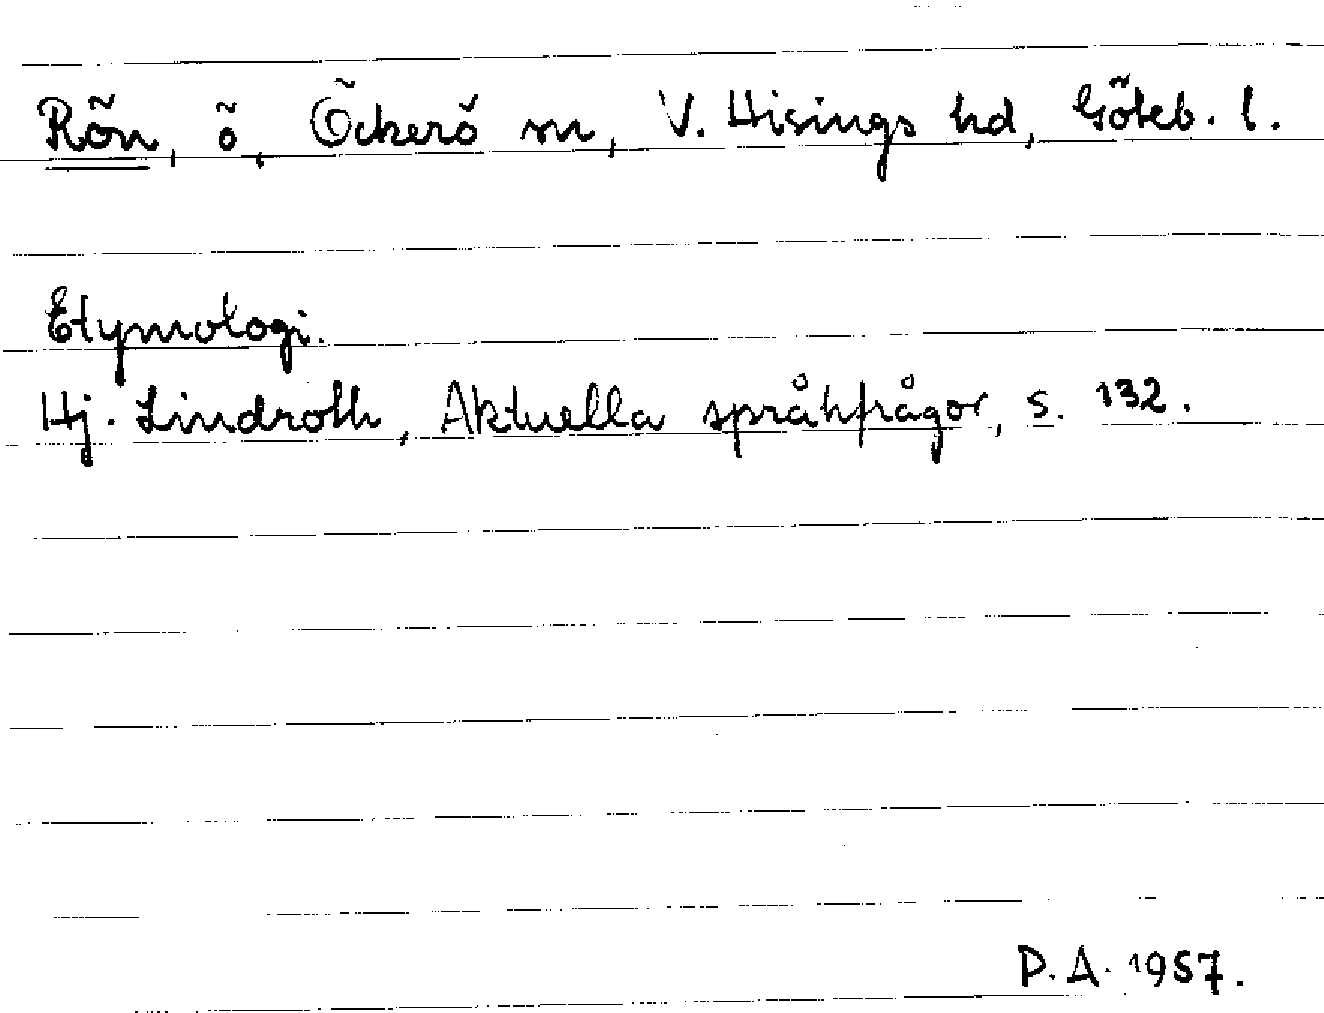 Rön, ö, Öckerö sn, V. Hisings hd, Göteb. l.
Etymologi.
Hj. Lindroth, Aktuella språkfrågor, s. 132.
P.A. 1957.